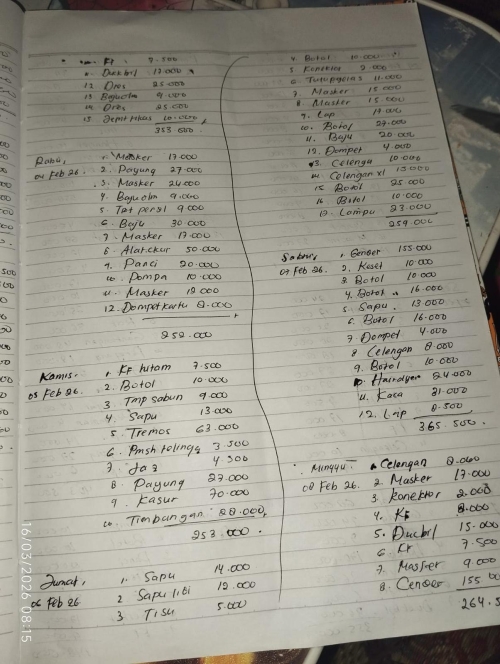 KF 7.500
11. Duckbil 17.000
12 Dres 25.000
13 Baju olm 9.000
14. Dres 25.000
15 Jepit tikus 10.000
353.000.
Rabu, 1. Masker 17.000
04 Feb 26. 2. Payung 27.000
3. Masker 24.000
4. Baju olm 9.000
5 Tat persl 9.000
6. Baju 30.000
7. Masker 17.000
8. Alat cukur 50.000
9. Panci 20.000
10. Pompa 10.000
11. Masker 12.000
12. Dompet kartu 8.000
252.000
Kamis. 1. KF hitam 7.500
05 Feb 26. 2. Botol 10.000
3 Tmp sabun 9.000
4. Sapu 13.000
5. Tremos 63.000
6. 3.500
7. Jas 4.500
8. Payung 27.000
9. Kasur 70.000
10. Timbangan 28.000
253.000.
Jumat, 1. Sapu 14.000
06 Feb 26 2 Sapu lidi 12.000
3 Tisu 5.000
4. Botol 10.000
5 Konektor 2.000
6. Tutup gelas 11.000
7. Masker 15.000
8. Masker 15.000
9. Lap 17.000
10. Botol 27.000
11. Baju 20.000
12. Dompet 4.000
13. Celengan 10.000
14. Celengan xl
15. Botol 25.000
16. Botol 10.000
17. Lampu 23.000
259.000
Sabtu, 1. Gender 155.000
07 Feb 26. 2. Keset 10.000
3. Botol 10.000
4. Botol 16.000
5. Sapu. 13.000
6. Botol 16.000
7 Dompet 4.000
8 Celengan 8.000
9. Botol 10.000
10. Hairdyer 24.000
11. Kaca 31.000
12. Lap 8.500
365.500.
Minggu 1. Celengan 8.000
08 Feb 26. 2. Masker 17.000
3. Konektor 2.000
4. KF 8.000
5. Duckbil 15.000
6. KF 7.500
7. Masker 9.000
8. Gender 155.00
264.5
16/03/2026 08:15